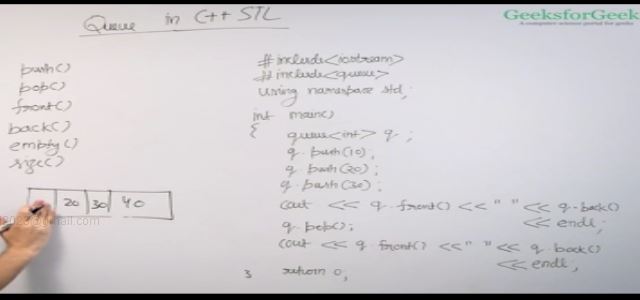 Queue in C++ STL
GeeksforGeek
A computer science portal for geeks
push()
pop()
front()
back()
empty()
size()
20 30 40
@gmail.com
#include<iostream>
#include<queue>
using namespace std;
int main()
{ queue<int> q ;
q.push(10);
q.push(20);
q.push(30);
cout << q.front() << " " << q.back()
<< endl;
q.pop();
cout << q.front() << " " << q.back()
<< endl;
} return 0;